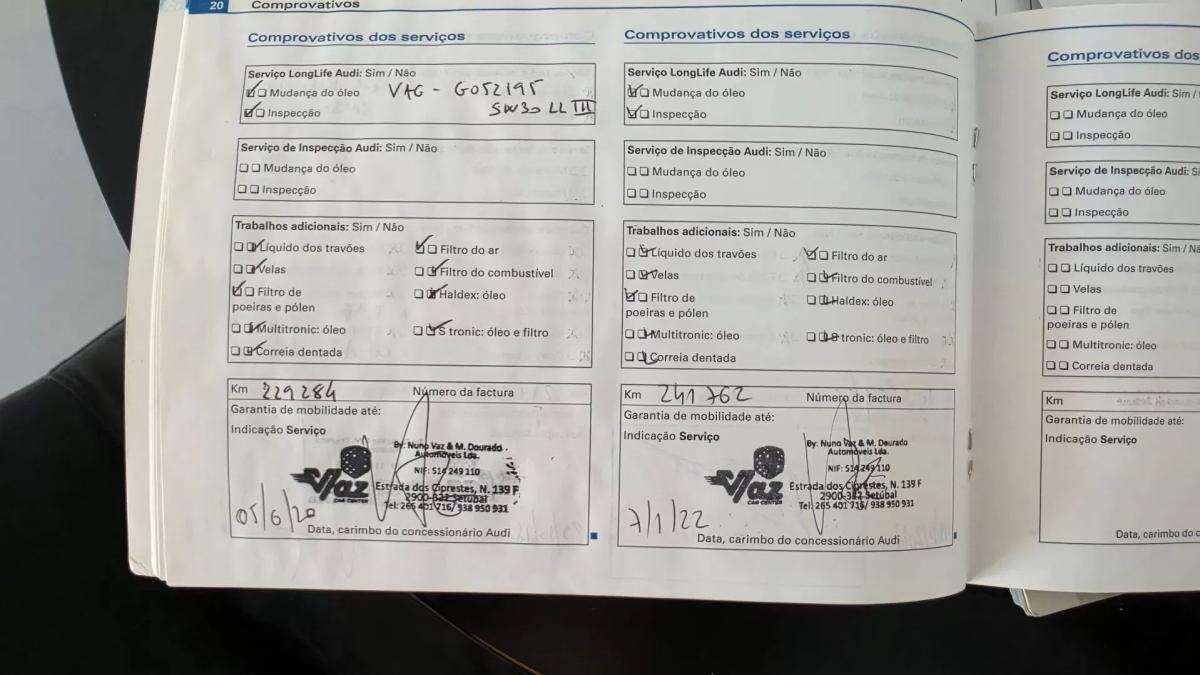 20 Comprovativos
Comprovativos dos serviços
Serviço LongLife Audi: Sim / Não
Mudança do óleo VAG - G052195
Inspecção 5W30 LL III
Serviço de Inspecção Audi: Sim / Não
Mudança do óleo
Inspecção
Trabalhos adicionais: Sim / Não
Líquido dos travões Filtro do ar
Velas Filtro do combustível
Filtro de Haldex: óleo
poeiras e pólen
Multitronic: óleo S tronic: óleo e filtro
Correia dentada
Km 229284 Número da factura
Garantia de mobilidade até:
Indicação Serviço
By: Nuno Vaz & M. Dourado
Automóveis Lda.
NIF: 514 249 110
Vaz
CAR CENTER
Estrada dos Ciprestes, N. 139 F
2900-322 Setúbal
Tel: 265 401 716/ 938 950 931
05/6/20
Data, carimbo do concessionário Audi
Comprovativos dos serviços
Serviço LongLife Audi: Sim / Não
Mudança do óleo
Inspecção
Serviço de Inspecção Audi: Sim / Não
Mudança do óleo
Inspecção
Trabalhos adicionais: Sim / Não
Líquido dos travões Filtro do ar
Velas Filtro do combustível
Filtro de Haldex: óleo
poeiras e pólen
Multitronic: óleo S tronic: óleo e filtro
Correia dentada
Km 241762 Número da factura
Garantia de mobilidade até:
Indicação Serviço
By: Nuno Vaz & M. Dourado
Automóveis Lda.
NIF: 514 249 110
Vaz
CAR CENTER
Estrada dos Ciprestes, N. 139 F
2900-322 Setúbal
Tel: 265 401 716/ 938 950 931
7/1/22
Data, carimbo do concessionário Audi
Comprovativos dos
Serviço LongLife Audi: Sim /
Mudança do óleo
Inspecção
Serviço de Inspecção Audi: Si
Mudança do óleo
Inspecção
Trabalhos adicionais: Sim / Nã
Líquido dos travões
Velas
Filtro de
poeiras e pólen
Multitronic: óleo
Correia dentada
Km
Garantia de mobilidade até:
Indicação Serviço
Data, carimbo do c